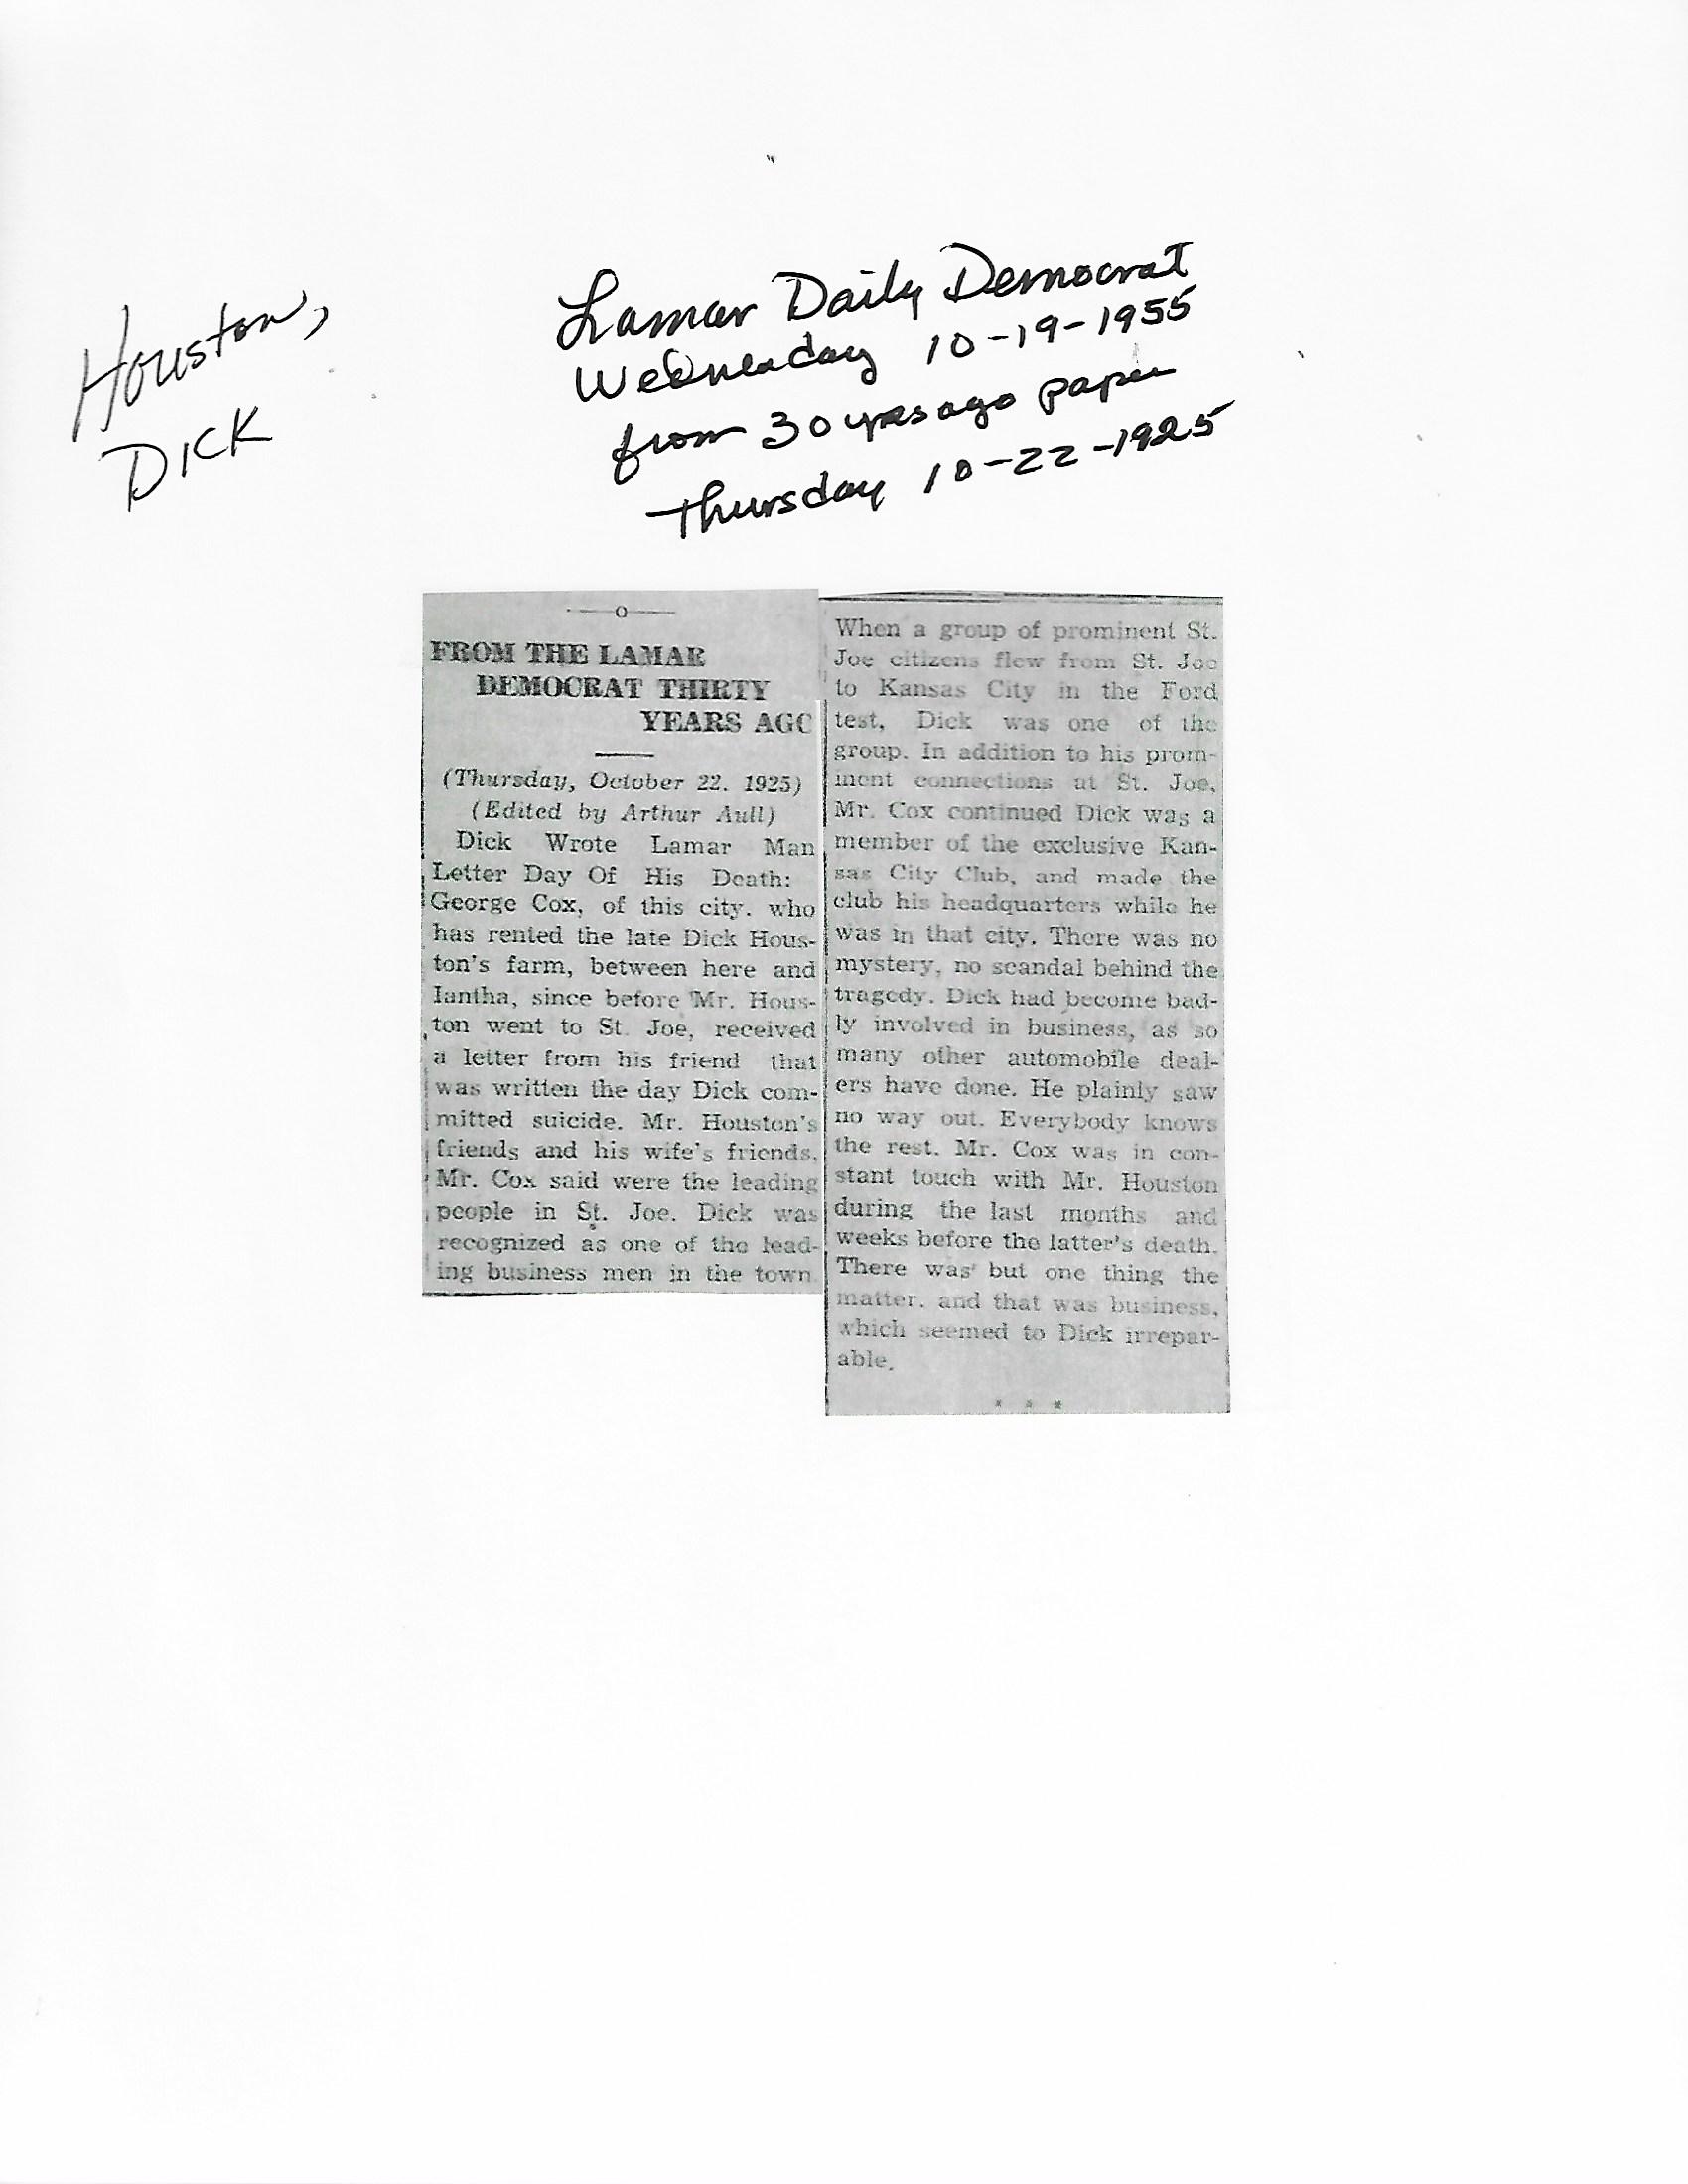 Houston,
Dick
Lamar Daily Democrat
Wednesday 10-19-1955
from 30 yrs ago paper
Thursday 10-22-1925
—o—
FROM THE LAMAR
DEMOCRAT THIRTY
YEARS AGO
(Thursday, October 22. 1925)
(Edited by Arthur Aull)
Dick Wrote Lamar Man
Letter Day Of His Death:
George Cox, of this city. who
has rented the late Dick Hous-
ton's farm, between here and
Iantha, since before Mr. Hous-
ton went to St. Joe, received
a letter from his friend that
was written the day Dick com-
mitted suicide. Mr. Houston's
friends and his wife's friends,
Mr. Cox said were the leading
people in St. Joe. Dick was
recognized as one of the lead-
ing business men in the town.
When a group of prominent St.
Joe citizens flew from St. Joe
to Kansas City in the Ford
test, Dick was one of the
group. In addition to his prom-
inent connections at St. Joe,
Mr. Cox continued Dick was a
member of the exclusive Kan-
sas City Club, and made the
club his headquarters while he
was in that city. There was no
mystery, no scandal behind the
tragedy. Dick had become bad-
ly involved in business, as so
many other automobile deal-
ers have done. He plainly saw
no way out. Everybody knows
the rest. Mr. Cox was in con-
stant touch with Mr. Houston
during the last months and
weeks before the latter's death.
There was but one thing the
matter. and that was business,
which seemed to Dick irrepar-
able.
* * *